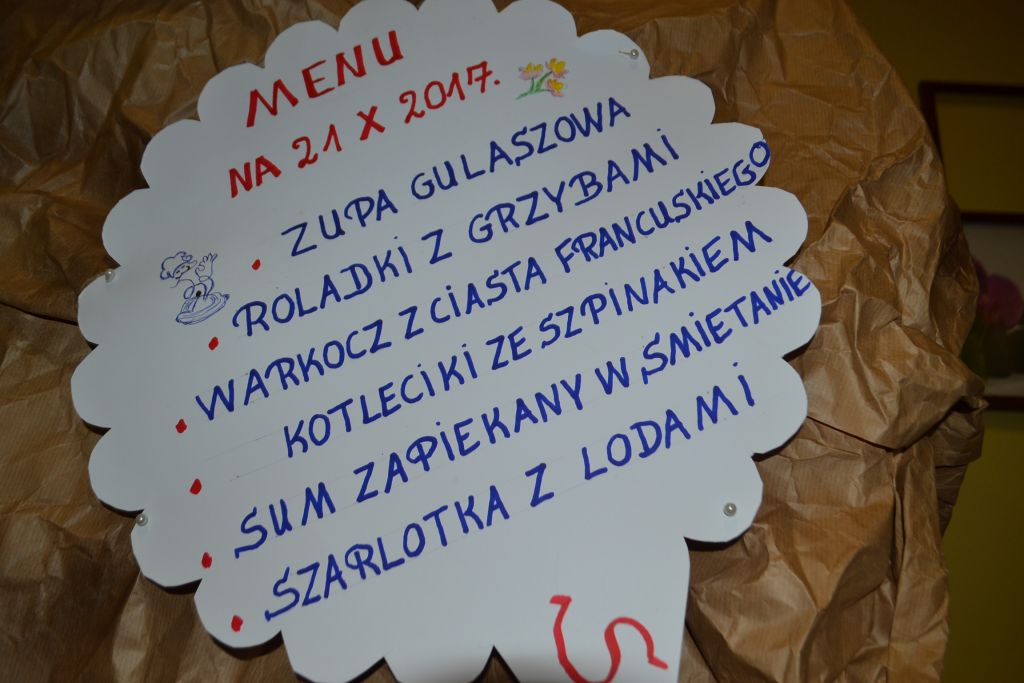 MENU
NA 21 X 2017.
• ZUPA GULASZOWA
• ROLADKI Z GRZYBAMI
• WARKOCZ Z CIASTA FRANCUSKIEGO
• KOTLECIKI ZE SZPINAKIEM
• SUM ZAPIEKANY W ŚMIETANIE
• SZARLOTKA Z LODAMI